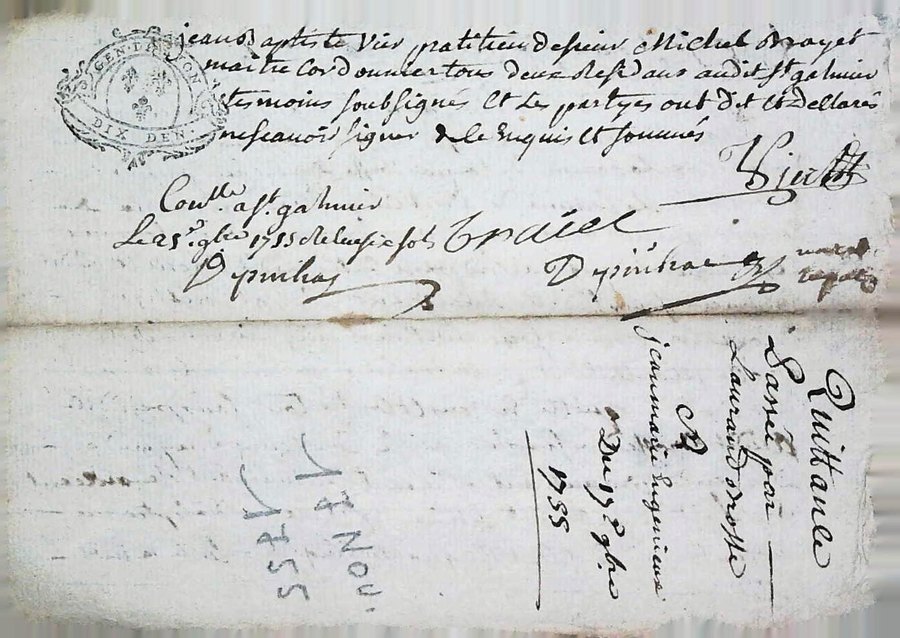 GEN. DE LYON
DIX DEN.
jean Baptiste Vier pratitien desieur Michel Brayet
maitre Cordonnier tous deux Residans audit st. galmier
tesmoins soubsignés Et Les partyes ont dit Et dellarés
ne scavoir signer de le Enquis Et sommés
Vier
Conlle. a st. galmier
Le 25e. 9bre 1755 Reĉu six sols
Depinhac
Depinhac
Quittance
Passée par
Laurand
A
jeanmarie
Du 17e. 9bre
1755
17 NOV.
1755